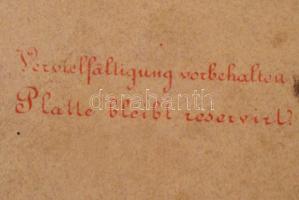 Vervielfältigung vorbehalten
Platte bleibt reservirt.
darabanth